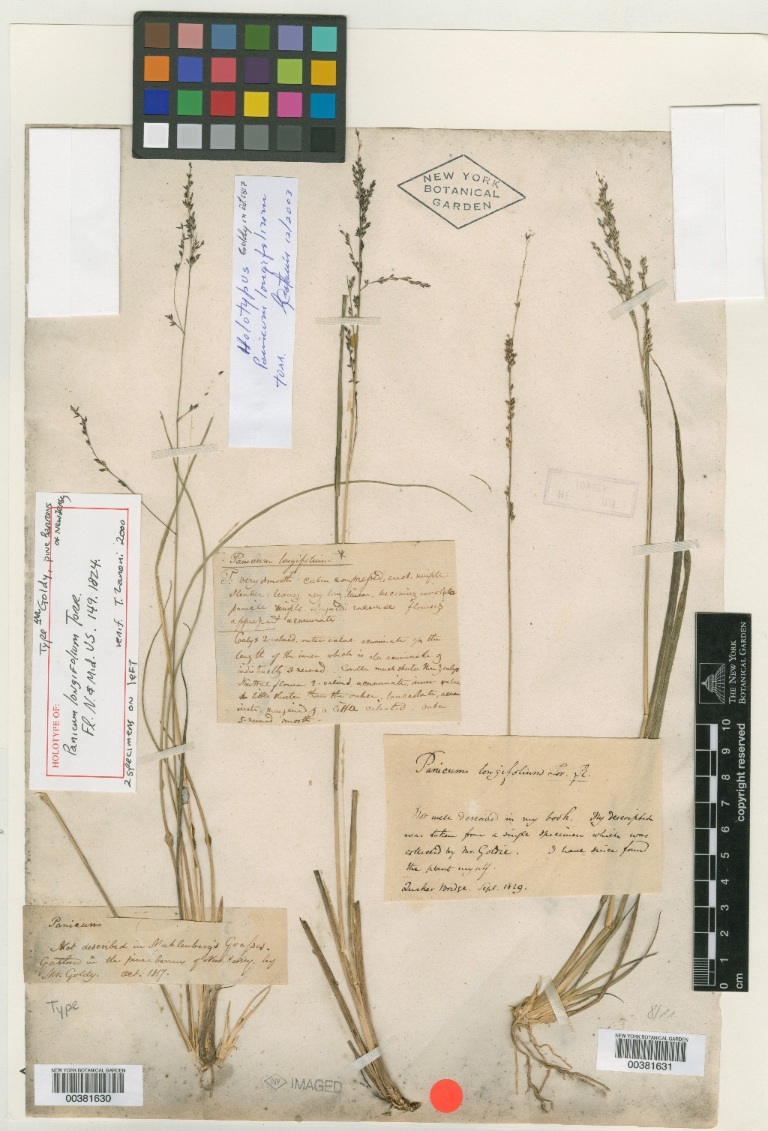 NEW YORK
BOTANICAL
GARDEN
Holotypus Goldy in oct 1817
Panicum longifolium
Torr. 12/2003
Type Mr Goldy, pine barrens
of New Jersey
HOLOTYPE OF:
Panicum longifolium Torr.
Fl. N & Mid. U.S. 149. 1824.
verif. T. Zanoni 2000
2 specimens on left
Panicum longifolium
T. very smooth. culm compressed, erect, simple
slender, leaves very long linear, becoming
panicle simple flowers
acuminate
Calyx 2 valved, outer valve acuminate, 1/2 the
length of the inner which is also acuminate &
indistinctly 3 nerved. Corolla much shorter than calyx
Neutral flower 2 valved acuminate, inner valve
a little shorter than the outer, lanceolate,
margined & a little ciliated. outer
5 nerved smooth.
Panicum longifolium Tor. Fl.
Not well described in my book. My description
was taken from a single specimen which was
collected by Mr. Goldie. I have since found
the plant myself.
Quaker Bridge. Sept. 1829.
Panicum
Not described in Muhlenberg's Grasses.
Gathered in the pine barrens of New Jersey by
Mr. Goldy. Oct. 1817.
Type
NEW YORK BOTANICAL GARDEN
00381630
NY IMAGED
NEW YORK BOTANICAL GARDEN
00381631
The New York
Botanical Garden
copyright reserved
0 1 2 3 4 5 6 7 8 9 10
cm